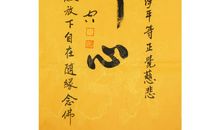 淨平等正覺慈悲
心
放下自在隨緣念佛